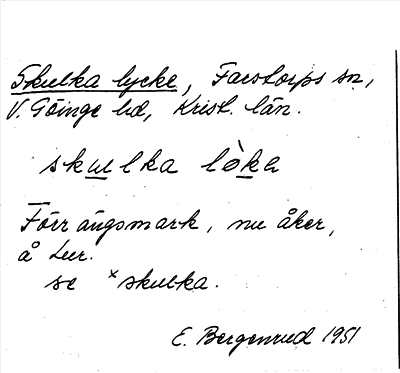 Skulka lycke, Farstorps sn,
V. Göinge hd, Krist. län.
skulka lø̀ke
Förr ängsmark, nu åker,
å Lur.
se ˣskulka.
E. Bergenrud 1951